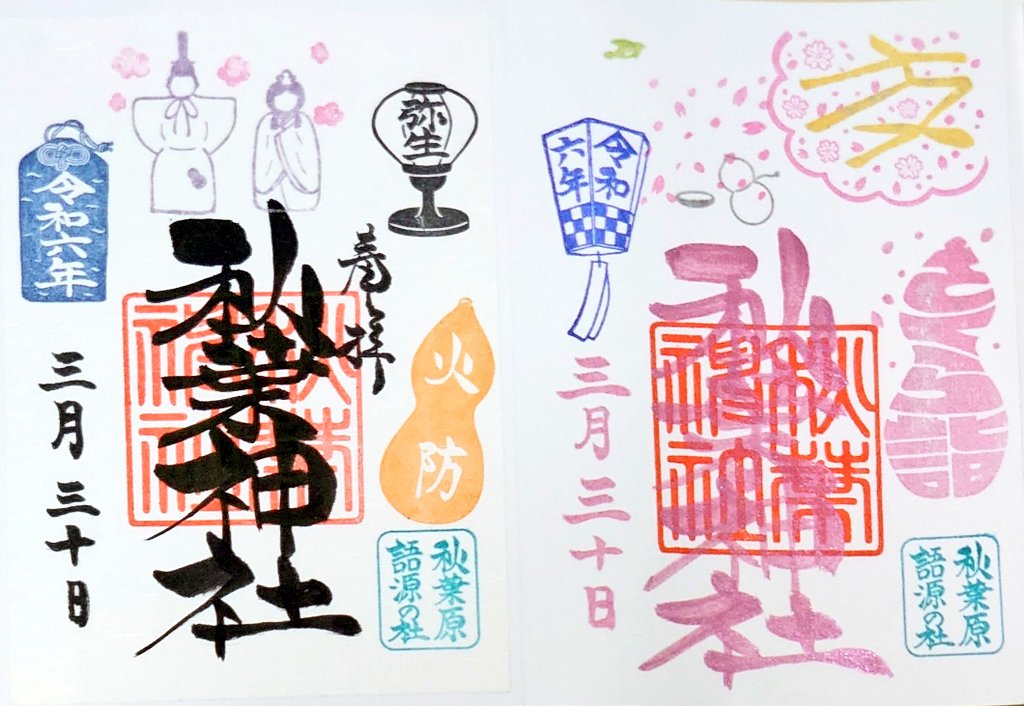 弥生
令和六年
奉拝
秋葉神社
秋葉神社
三月三十日
火防
秋葉原
語源の社
令和
六年
秋葉神社
秋葉神社
三月三十日
秋葉原
語源の社